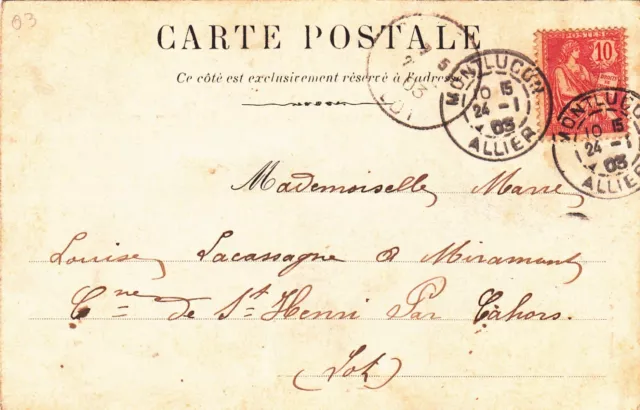 03
CARTE POSTALE
Ce côté est exclusivement réservé à l'adresse
75
03
LOT
MONTLUCON
10 15
24 - 1
03
ALLIER
POSTES
10
MONTLUCON
10 15
24 - 1
03
ALLIER
Mademoiselle Marie
Louise Lacassagne à Miramont
Cne de St Henri Par Cahors
(Lot)